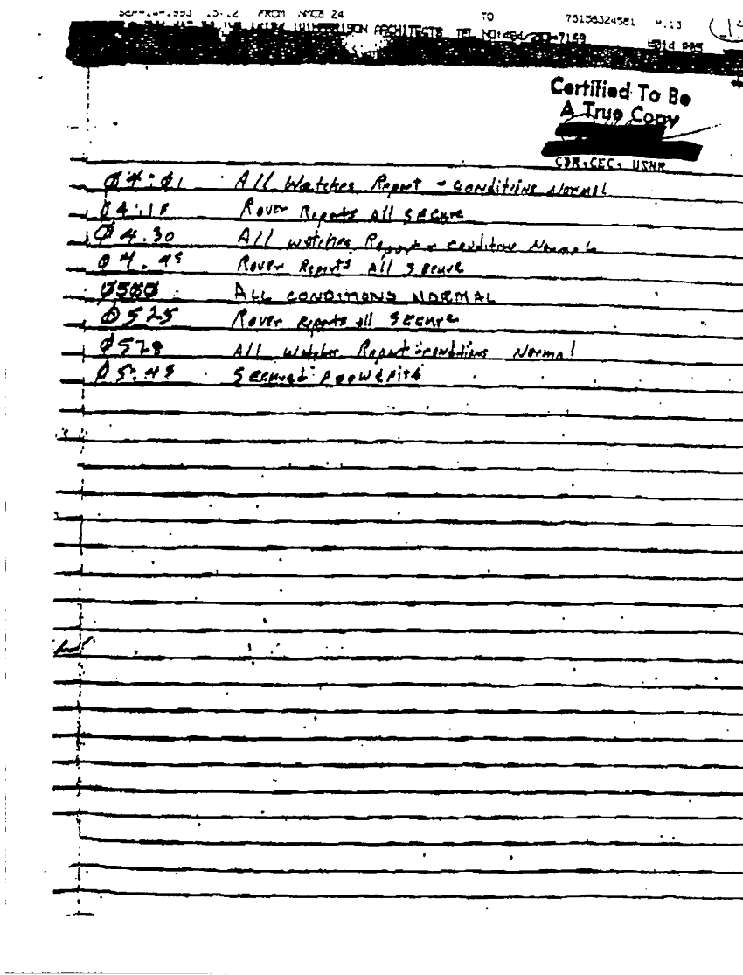 FROM NMCB 24 TO P.13
ARCHITECTS TEL
Certified To Be
A True Copy
CDR, CEC, USNR
04:01 All Watches Report - Conditions Normal
04:15 Rover Reports All Secure
04:30 All Watches Report - Conditions Normal
04:45 Rover Reports All Secure
0500 ALL CONDITIONS NORMAL
0525 Rover Reports all Secure
0528 All Watches Report Conditions Normal
05:45 Secured